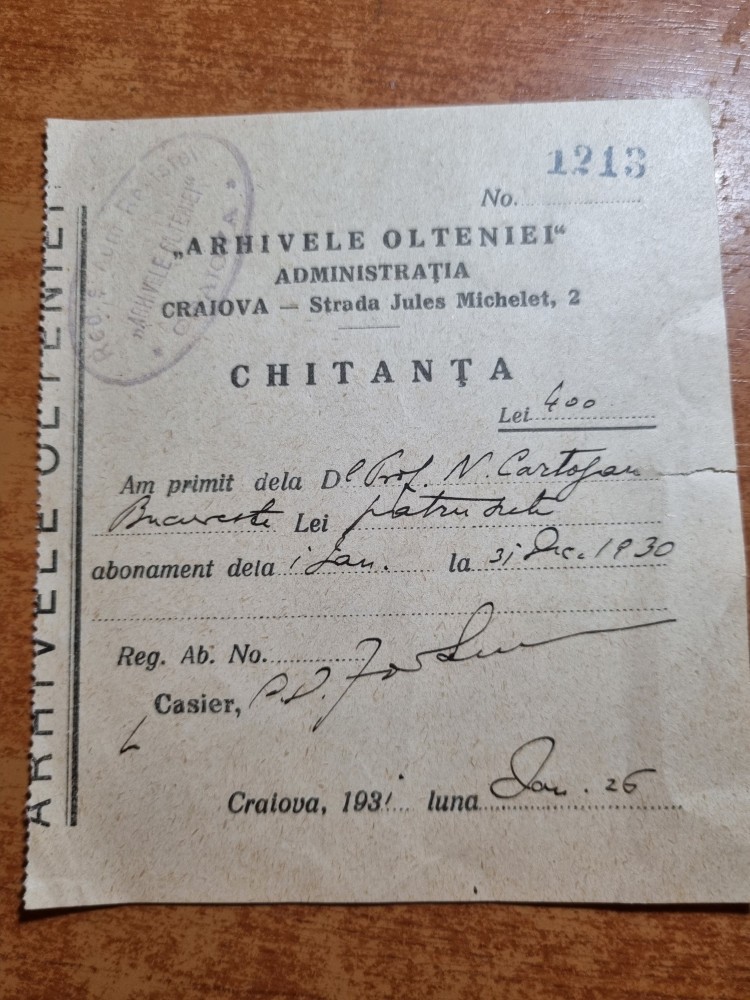 1213
No.
„ARHIVELE OLTENIEI“
ADMINISTRAȚIA
CRAIOVA — Strada Jules Michelet, 2
CHITANȚA
Lei 400
Am primit dela Dl Prof. N. Cartojan
Bucureste Lei patru sute
abonament dela 1 Ian. la 31 Dec. 1930
Reg. Ab. No.
Casier, P.D.
Craiova, 1931 luna Ian. 26
ARHIVELE OLTENIEI
„ARHIVELE OLTENIEI“
CRAIOVA